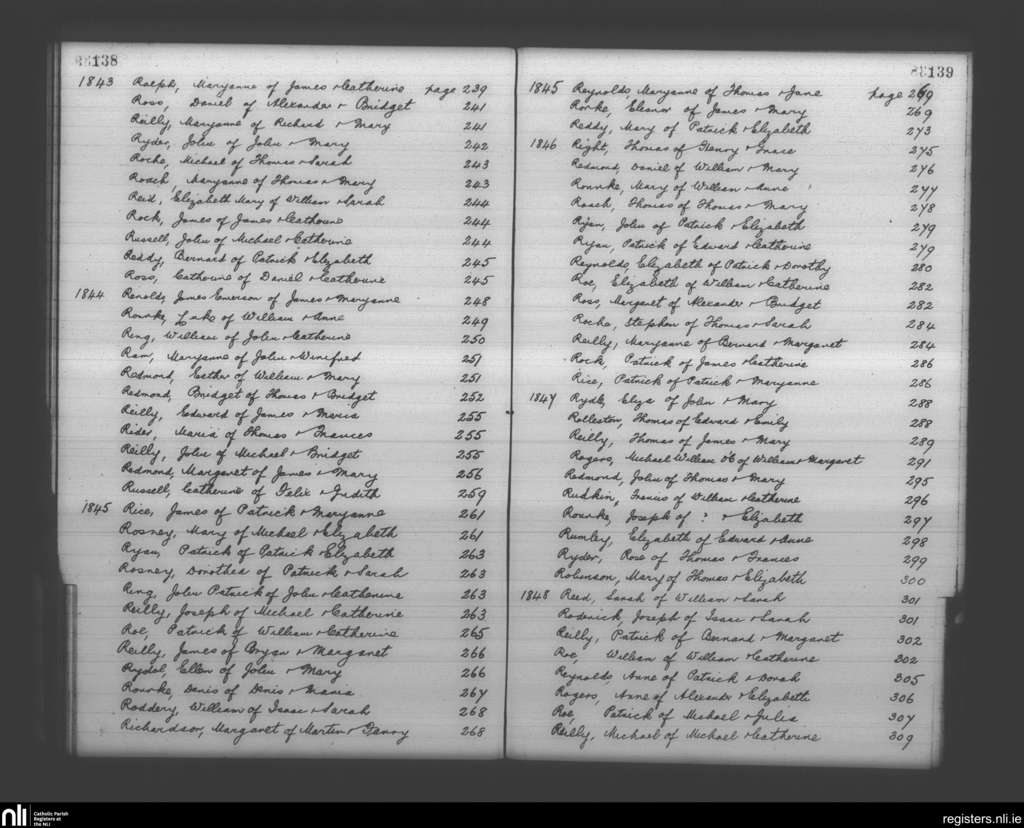 138
1843 Ralph, Maryanne of James & Catherine page 239
Ross, Daniel of Alexander & Bridget 241
Reilly, Maryanne of Richard & Mary 241
Ryder, John of John & Mary 242
Roche, Michael of Thomas & Sarah 243
Roach, Maryanne of Thomas & Mary 243
Reid, Elizabeth Mary of William & Sarah 244
Rock, James of James & Catherine 244
Russell, John of Michael & Catherine 244
Reddy, Bernard of Patrick & Elizabeth 245
Ross, Catherine of Daniel & Catherine 245
1844 Renolds, James Emerson of James & Maryanne 248
Rourke, Luke of William & Anne 249
Ring, William of John & Catherine 250
Raw, Maryanne of John & Winifred 251
Redmond, Esther of William & Mary 251
Redmond, Bridget of Thomas & Bridget 252
Reilly, Edward of James & Maria 255
Rider, Maria of Thomas & Frances 255
Reilly, John of Michael & Bridget 255
Redmond, Margaret of James & Mary 256
Russell, Catherine of Felix & Judith 259
1845 Rice, James of Patrick & Maryanne 261
Rosney, Mary of Michael & Elizabeth 261
Ryan, Patrick of Patrick & Elizabeth 263
Rosney, Dorothea of Patrick & Sarah 263
Ring, John Patrick of John & Catherine 263
Reilly, Joseph of Michael & Catherine 263
Roe, Patrick of William & Catherine 265
Reilly, James of Bryan & Margaret 266
Rydal, Ellen of John & Mary 266
Rourke, Denis of Denis & Maria 267
Roddery, William of Isaac & Sarah 268
Richardson, Margaret of Martin & Fanny 268
139
1845 Reynolds, Maryanne of Thomas & Jane page 269
Rorke, Eleanor of James & Mary 269
Reddy, Mary of Patrick & Elizabeth 273
1846 Right, Thomas of Henry & Grace 275
Redmond, Daniel of William & Mary 276
Rourke, Mary of William & Anne 277
Roach, Thomas of Thomas & Mary 278
Ryan, John of Patrick & Elizabeth 279
Ryan, Patrick of Edward & Catherine 279
Reynolds, Elizabeth of Patrick & Dorothy 280
Roe, Elizabeth of William & Catherine 282
Ross, Margaret of Alexander & Bridget 282
Roche, Stephen of Thomas & Sarah 284
Reilly, Maryanne of Bernard & Margaret 284
Rock, Patrick of James & Catherine 286
Rice, Patrick of Patrick & Maryanne 286
1847 Rydle, Eliza of John & Mary 288
Rolleston, Thomas of Edward & Emily 288
Reilly, Thomas of James & Mary 289
Rogers, Michael William of William & Margaret 291
Redmond, John of Thomas & Mary 295
Rudkin, Francis of William & Catherine 296
Rourke, Joseph of ? & Elizabeth 297
Rumley, Elizabeth of Edward & Anne 298
Ryder, Rose of Thomas & Frances 299
Robinson, Mary of Thomas & Elizabeth 300
1848 Reed, Sarah of William & Sarah 301
Roderick, Joseph of Isaac & Sarah 301
Reilly, Patrick of Bernard & Margaret 302
Roe, William of William & Catherine 302
Reynolds Anne of Patrick & Dorah 305
Rogers, Anne of Alexander & Elizabeth 306
Roe, Patrick of Michael & Julia 307
Reilly, Michael of Michael & Catherine 309
nli Catholic Parish Registers at the NLI
registers.nli.ie